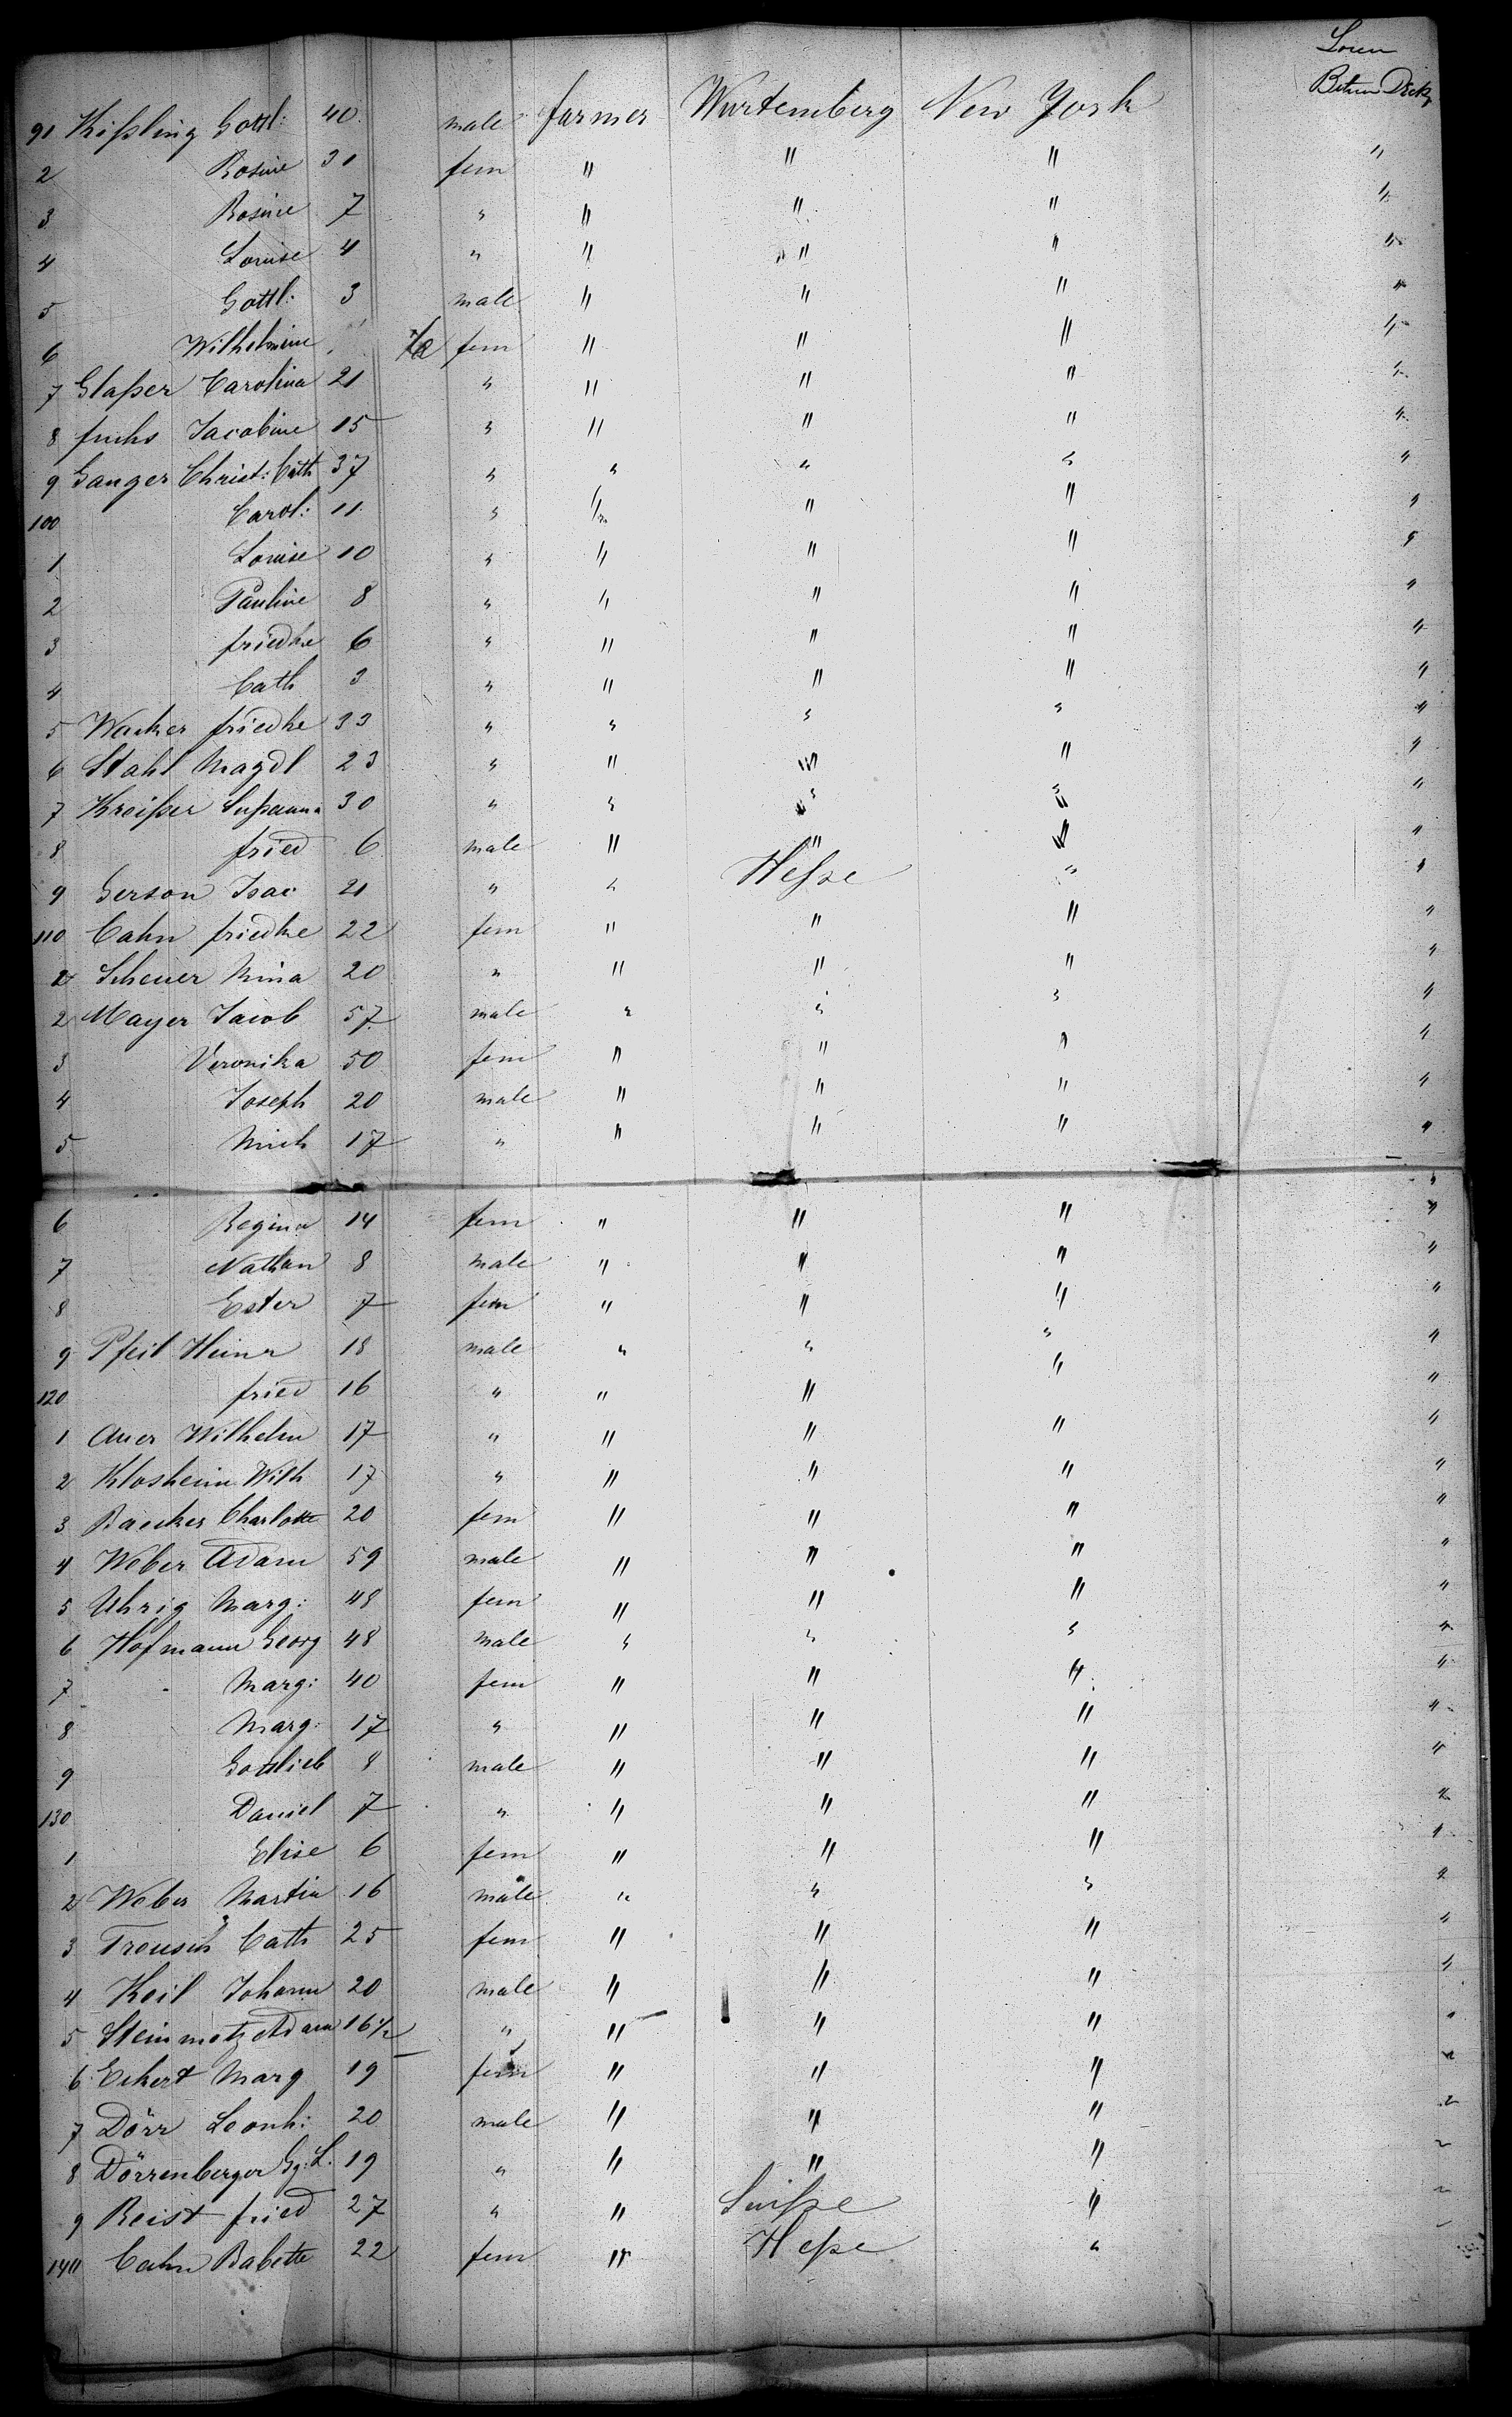 Lower
Betwen Decks
91 Kißling Gottl: 40 male farmer Wurtemberg New York
2 Rosine 31 fem " " " "
3 Rosine 7 " " " " "
4 Louise 4 " " " " "
5 Gottl: 3 male " " " "
6 Wilhelmine fem " " " "
7 Glaßer Carolina 21 " " " " "
8 fuchs Jacobine 15 " " " " "
9 Ganger Christ: Cath 37 " " " " "
100 Carol: 11 " " " " "
1 Louise 10 " " " " "
2 Pauline 8 " " " " "
3 friedke 6 " " " " "
4 Cath 3 " " " " "
5 Wacker friedke 33 " " " " "
6 Stahl Magdl 23 " " " " "
7 Kreißer Sußanna 30 " " " " "
8 fried 6 male " " " "
9 Gerson Isac 21 " " Heße " "
110 Cahn friedke 22 fem " " " "
2 Scheuer Mina 20 " " " " "
2 Mayer Jacob 57 male " " " "
3 Veronika 50 fem " " " "
4 Joseph 20 male " " " "
5 Mich 17 " " " " "
"
6 Regina 14 fem " " " "
7 Nathan 8 male " " " "
8 Ester 7 fem " " " "
9 Pfeil Heinr 18 male " " " "
120 fried 16 " " " " "
1 Auer Wilhelm 17 " " " " "
2 Klosheim Wilh 17 " " " " "
3 Baecker Charlotte 20 fem " " " "
4 Weber Adam 59 male " " " "
5 Uhrig Marg: 48 fem " " " "
6 Hofmann Georg 48 male " " " "
7 Marg: 40 fem " " " "
8 Marg: 17 " " " " "
9 Gottlieb 8 male " " " "
130 Daniel 7 " " " " "
1 Elise 6 fem " " " "
2 Weber Martin 16 male " " " "
3 Treusch Cath 25 fem " " " "
4 Keil Johann 20 male " " " "
5 Steinmetz Adam 16 1/2 " " " " "
6 Eckert Marg 19 fem " " " "
7 Dörr Leonh: 20 male " " " "
8 Dörrenberger Gg: L. 19 " " " " "
9 Reist fried 27 " " Suiße " "
140 Cahn Babette 22 fem " Heße "